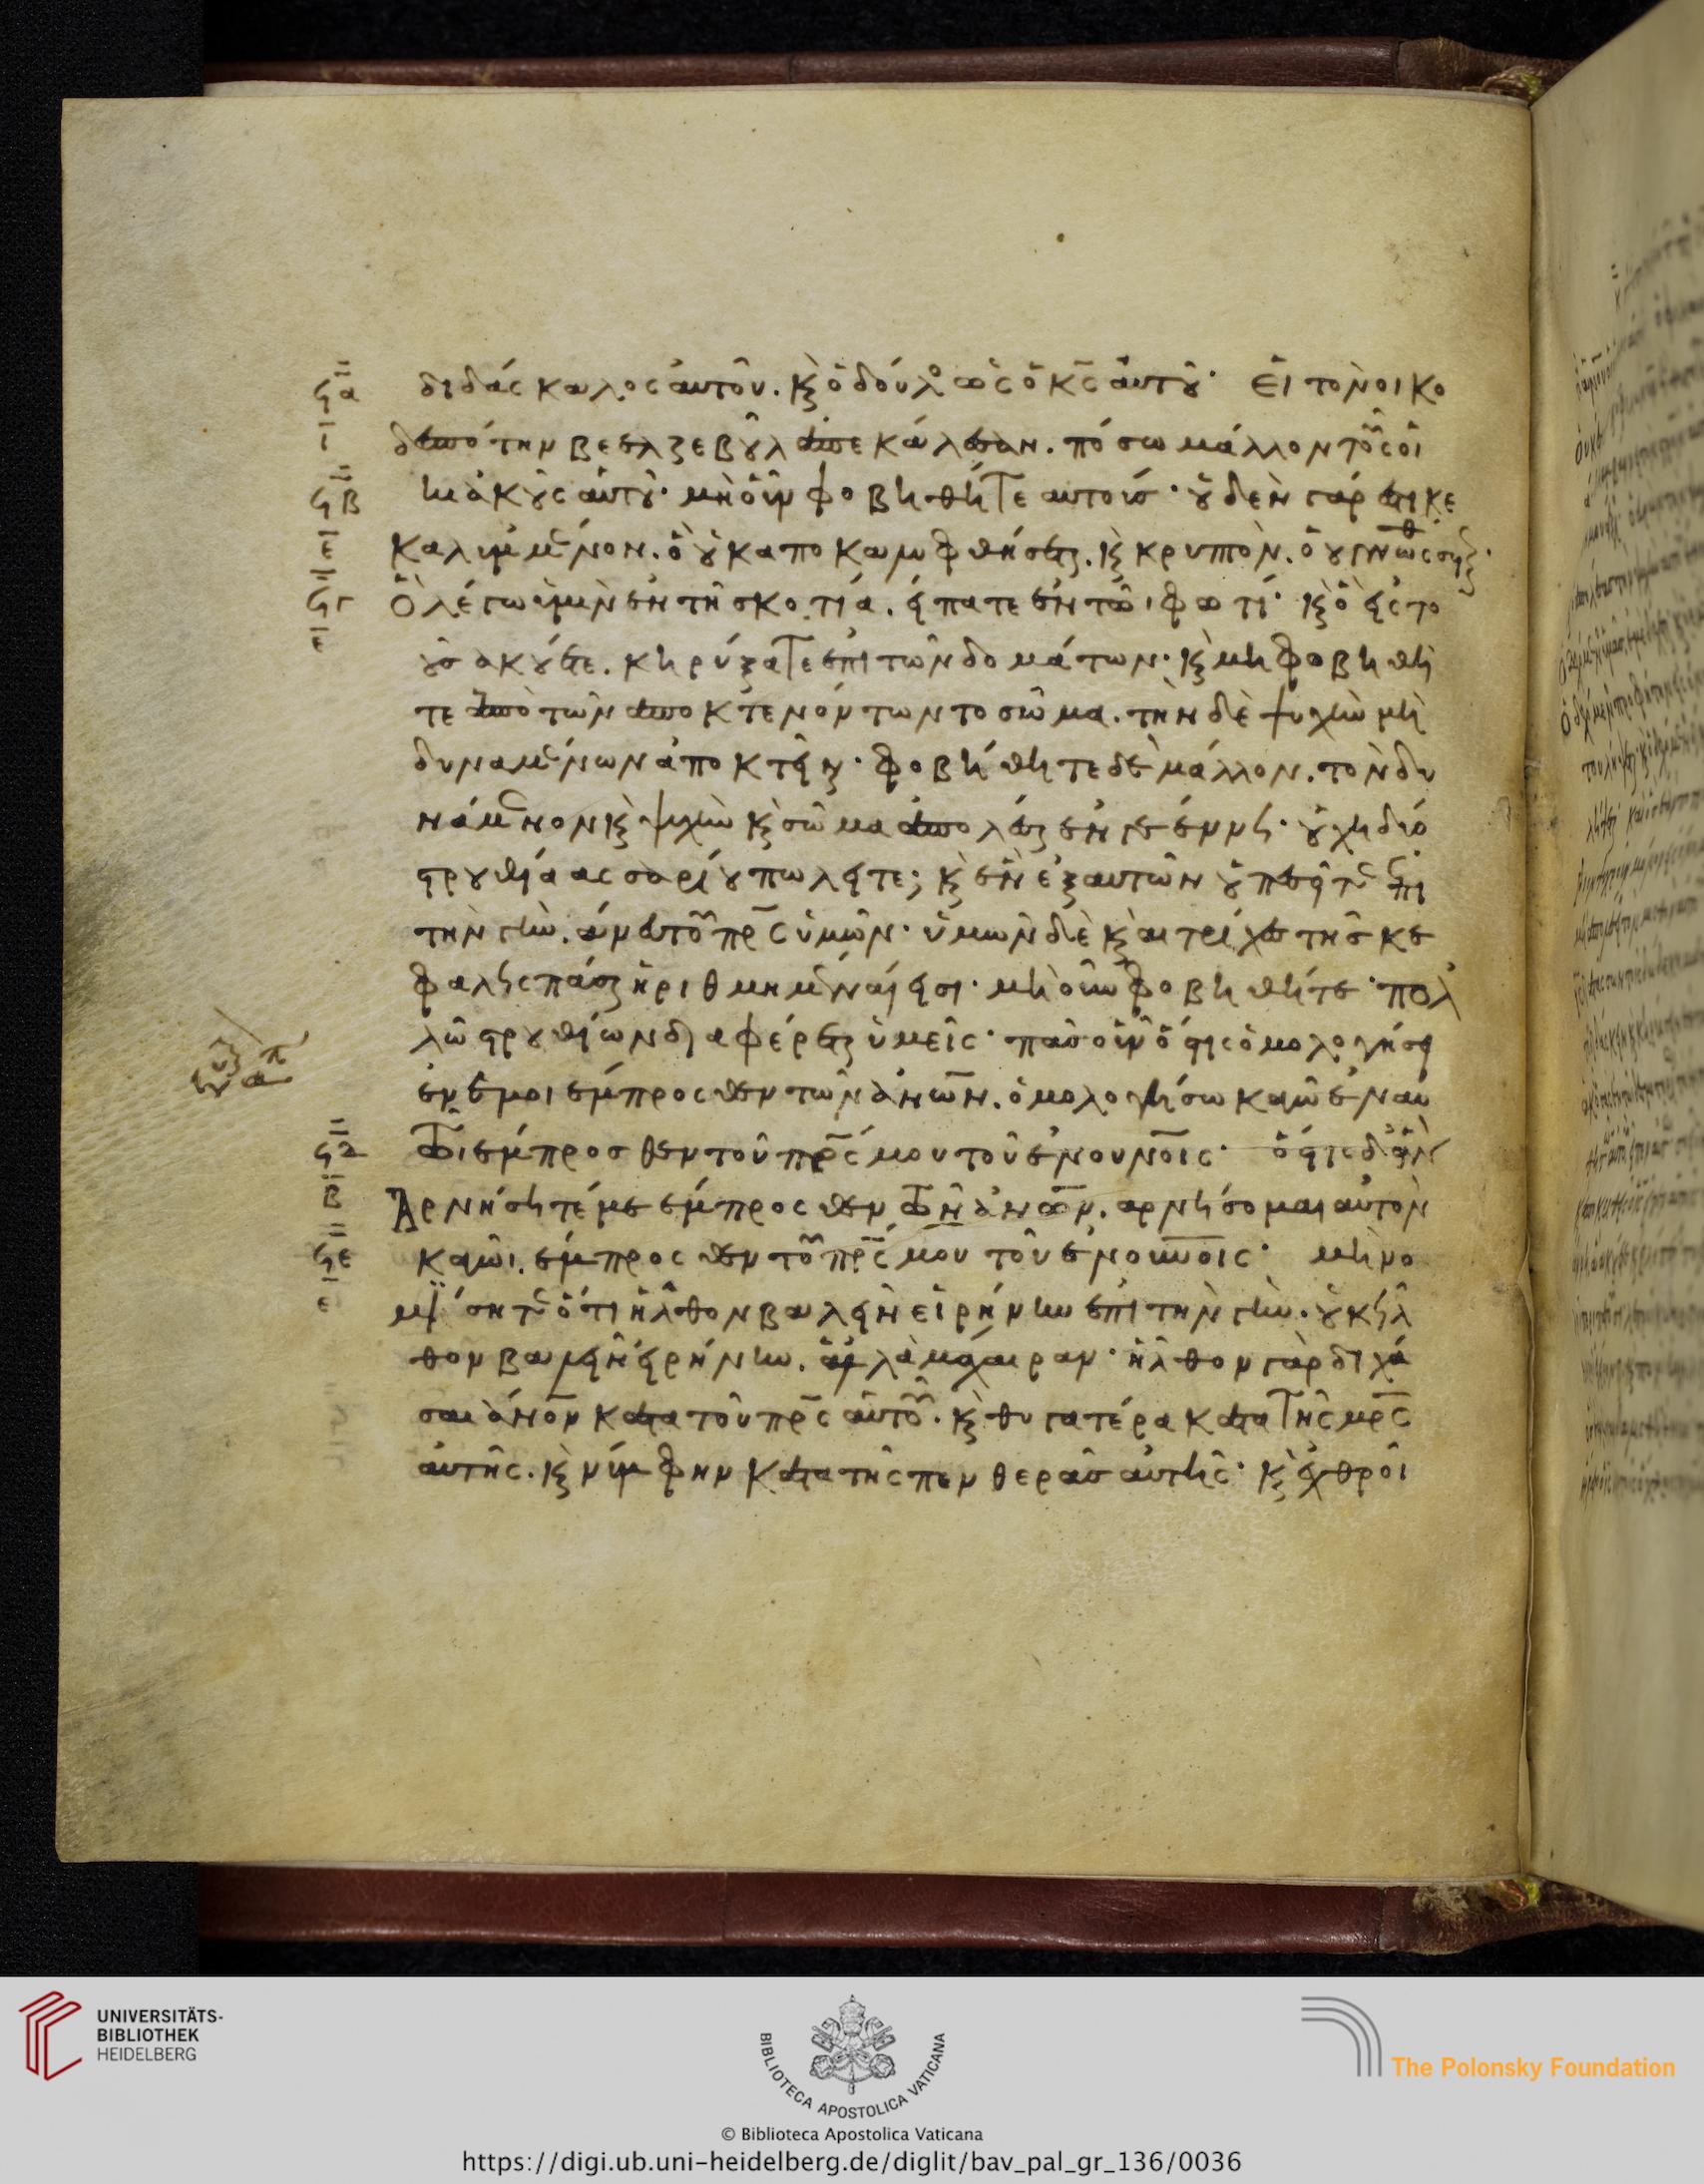 ϟα διδάσκαλος αὐτοῦ. κ̀ ὁ δοῦλο ὡς ὁ κ̅ς αὐτοῦ· Εἰ τὸν οἰκο
ι δεσπότην βεελζεβοὺλ ἀπεκάλεσαν. πόσω μάλλον τοὺς οἰ
ϟβ κιακοὺς αὐτοῦ· μὴ οὖν φοβηθῆτε αὐτούς· οὐδὲν γάρ ἐστι κε
ε καλυμμένον. ὃ οὐκ αποκαλυφθήσεται. κ̀ κρυπτὸν. ὃ οὐ γνωσθήσεται·
ϟγ Ὃ λέγω ὑμῖν ἐν τῆ σκοτία. εἴπατε ἐν τῶι φωτί· κ̀ ὃ εἰς τὸ
ε οὖς ἀκούετε. κηρύξατε ἐπὶ τῶν δομάτων· κ̀ μὴ φοβηθῆ
τε ἀπὸ τῶν ἀποκτενόντων το σῶμα. τὴν δὲ ψυχὴν μὴ
δυναμένων ἀποκτεῖναι· φοβήθητε δὲ μάλλον. τὸν δυ
νάμενον κ̀ ψυχὴν κ̀ σῶμα ἀπολέσαι ἐν γεέννη· οὐχὶ δύο
στρουθία ασσαρίου πωλεῖτε; κ̀ ἓν ἐξ αυτῶν οὐ πεσεῖται ἐπὶ
τὴν γῆν. ἄνευ τοῦ πρ̅ς ὑμῶν· ὑμῶν δὲ κ̀ αι τρίχες τῆς κε
φαλῆς πᾶσαι ἠριθμημέναι εἰσι· μὴ οὖν φοβηθῆτε· πολ
λῶ στρουθίων διαφέρετε ὑμεῖς· πᾶς οὖν ὅστις ὁμολογήσει
ἐν ἐμοι ἔμπροσθεν τῶν ἀν̅ων. ὁμολογήσω καγῶ ἐν αυ
ϟδ τῶι ἔμπροσθεν τοῦ πρ̅ς μου τοῦ ἐν ουν̅οις· ὅστις δ' ἂν
β Ἀρνήσητέ με ἔμπροσθεν τῶν ἀν̅ων. αρνήσομαι αὐτὸν
ϟε καγῶι. ἔμπροσθεν τοῦ πρ̅ς μου τοῦ ἐν ουν̅οις· μὴ νο
ε μίσητε ὅτι ἦλθον βαλεῖν εἰρήνην ἐπὶ τὴν γῆν. οὐκ ἦλ
θον βαλεῖν εἰρήνην. ἀλλὰ μάχαιραν· ἦλθον γὰρ διχά
σαι ἄν̅ον κατα τοῦ πρ̅ς αὐτοῦ. κ̀ θυγατέρα κατα τῆς μρ̅ς
αὐτῆς. κ̀ νύμφην κατα τῆς πενθερᾶς αὐτῆς· κ̀ ἐχθροὶ
UNIVERSITÄTS-
BIBLIOTHEK
HEIDELBERG
BIBLIOTECA APOSTOLICA VATICANA
The Polonsky Foundation
© Biblioteca Apostolica Vaticana
https://digi.ub.uni-heidelberg.de/diglit/bav_pal_gr_136/0036